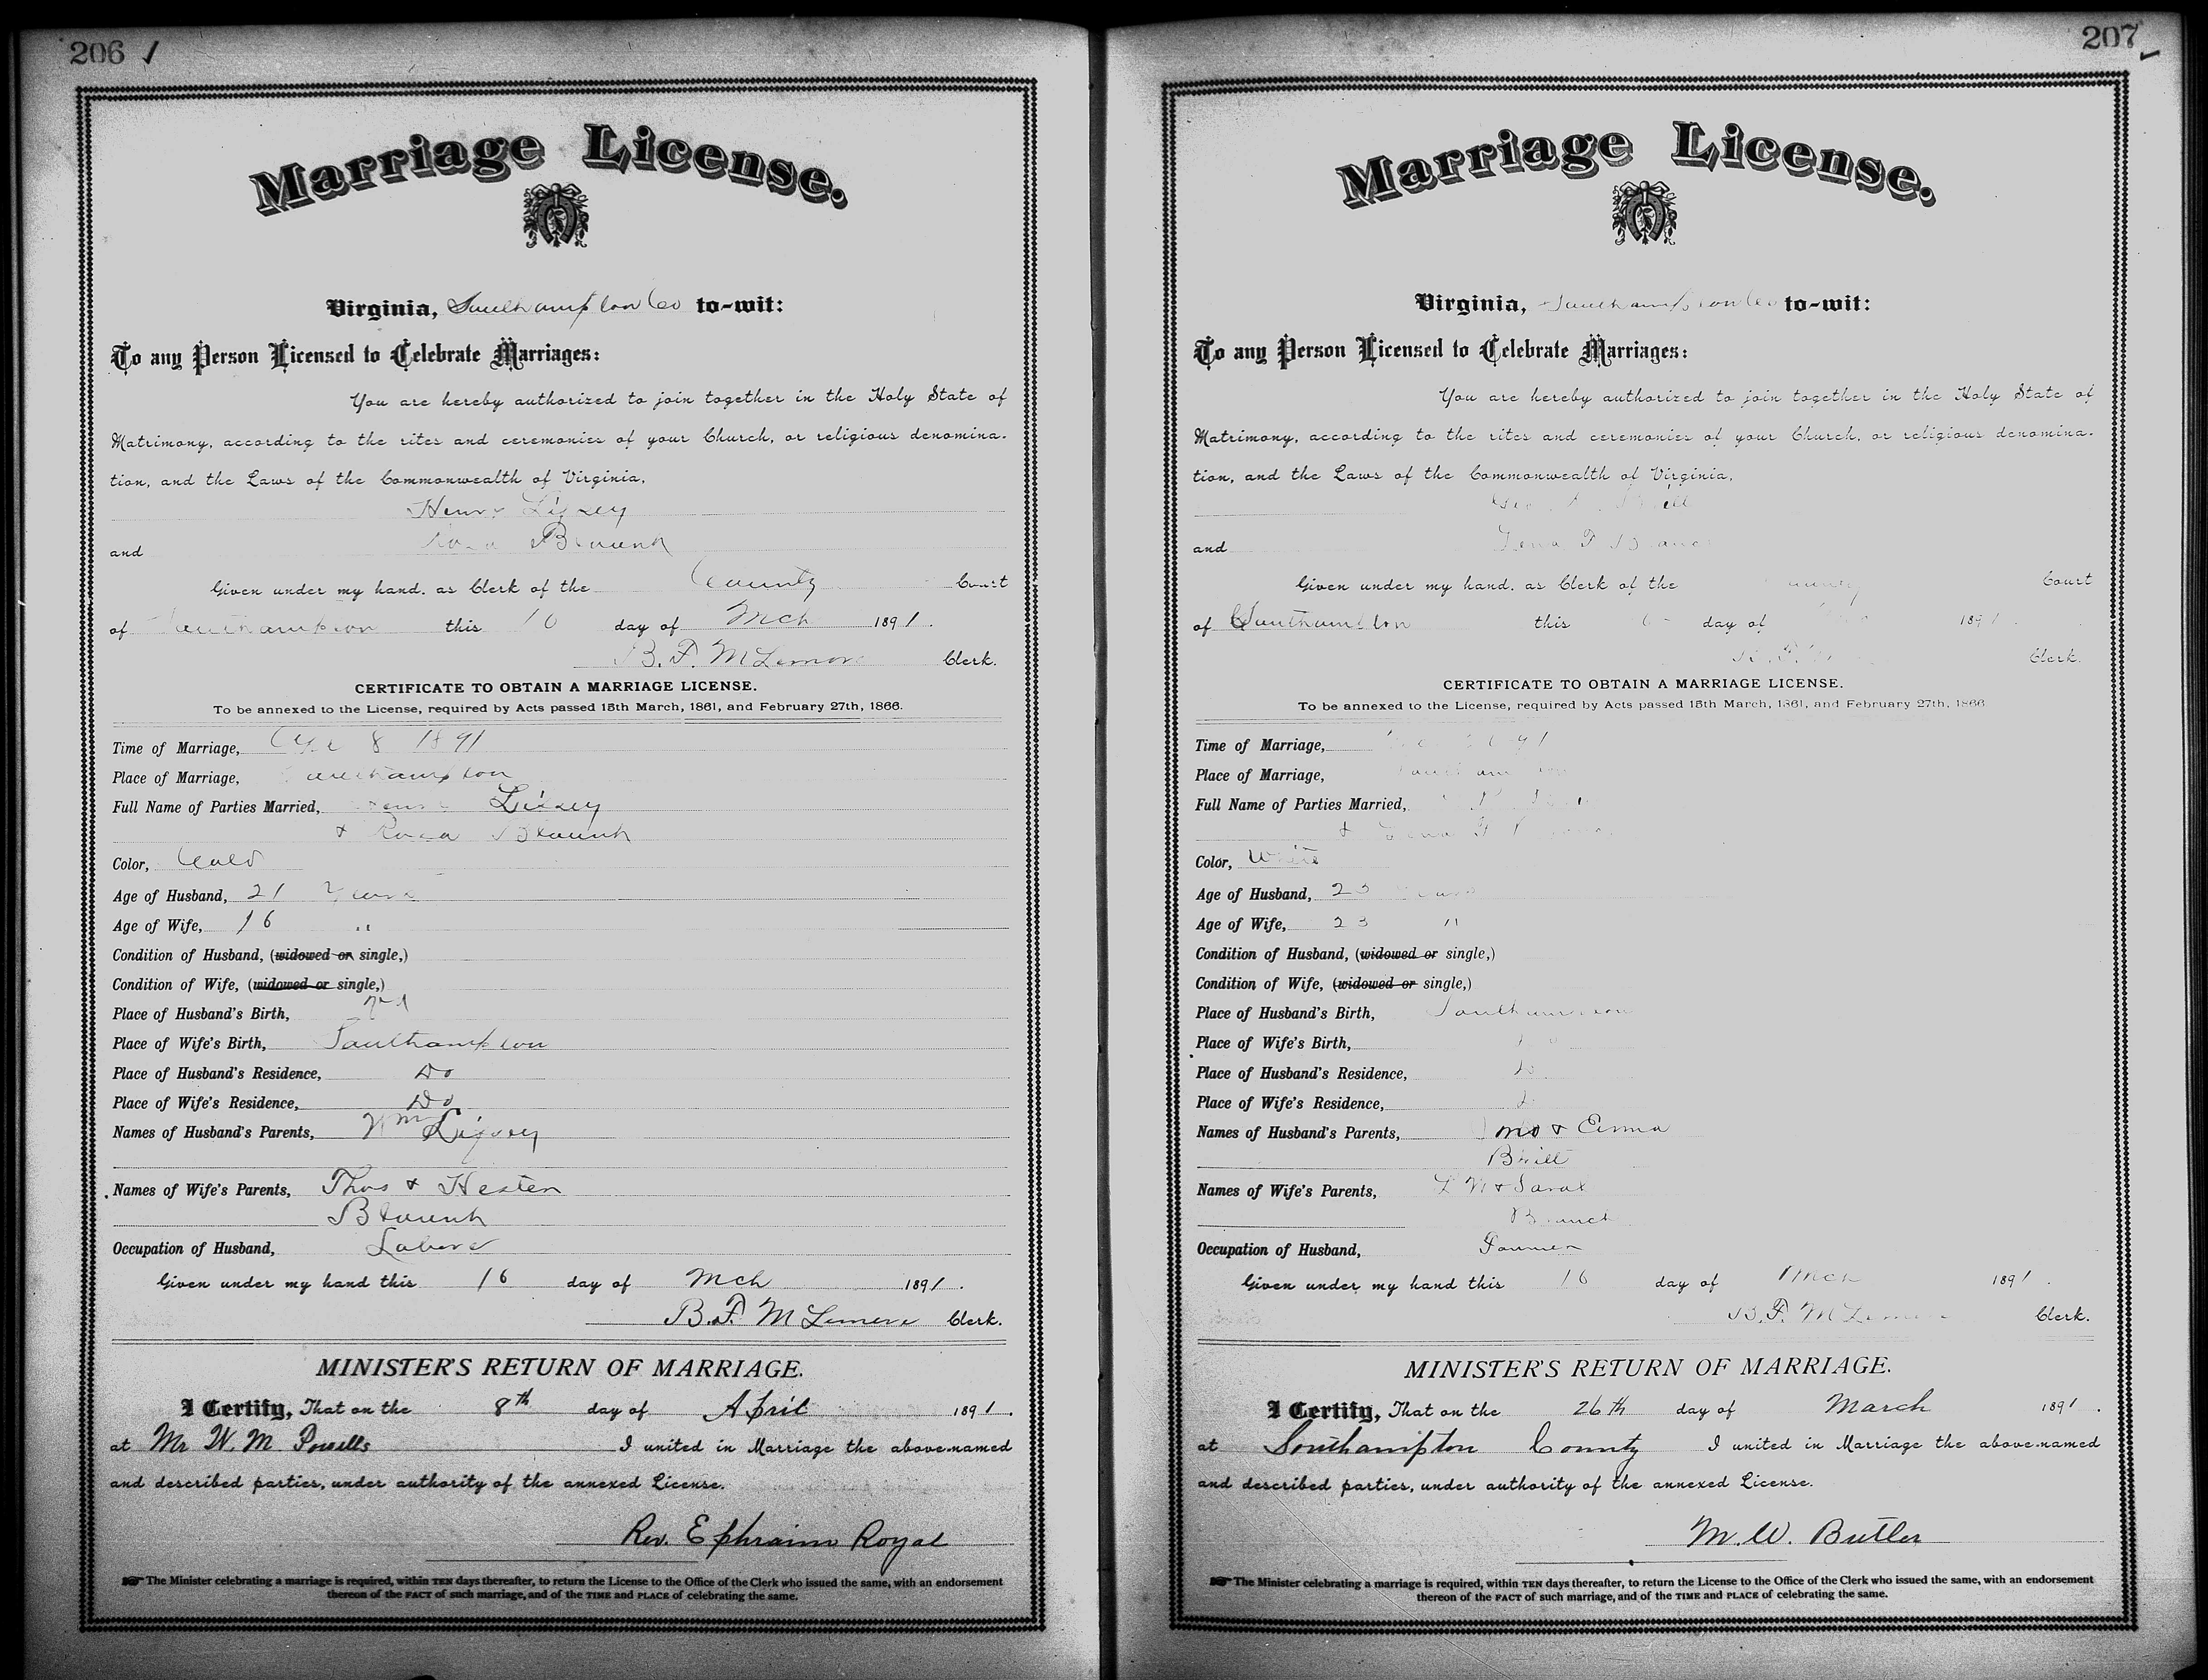 206
Marriage License.
Virginia, Southampton Co to-wit:
To any Person Licensed to Celebrate Marriages:
You are hereby authorized to join together in the Holy State of
Matrimony, according to the rites and ceremonies of your Church, or religious denomina-
tion, and the Laws of the Commonwealth of Virginia,
Henry
and Rosa Blount
Given under my hand, as Clerk of the County Court
of Southampton this day of Mch 1891.
B. F. McLemore Clerk.
CERTIFICATE TO OBTAIN A MARRIAGE LICENSE.
To be annexed to the License, required by Acts passed 15th March, 1861, and February 27th, 1866.
Time of Marriage, Apl 8 1891
Place of Marriage, Southampton
Full Name of Parties Married, Henry
+ Rosa Blount
Color, Cold
Age of Husband, 21 Years
Age of Wife, 16 "
Condition of Husband, (widowed or single,)
Condition of Wife, (widowed or single,)
Place of Husband's Birth,
Place of Wife's Birth, Southampton
Place of Husband's Residence, Do
Place of Wife's Residence, Do
Names of Husband's Parents, Wm
Names of Wife's Parents, Thos + Hester
Blount
Occupation of Husband, Laborer
Given under my hand this 16 day of Mch 1891.
B. F. McLemore Clerk.
MINISTER'S RETURN OF MARRIAGE.
I Certify, That on the 8th day of April 1891.
at Mr W. M. Powells I united in Marriage the above-named
and described parties, under authority of the annexed License.
Rev. Ephraim Royal
The Minister celebrating a marriage is required, within TEN days thereafter, to return the License to the Office of the Clerk who issued the same, with an endorsement
thereon of the FACT of such marriage, and of the TIME and PLACE of celebrating the same.
207
Marriage License.
Virginia, Southampton Co to-wit:
To any Person Licensed to Celebrate Marriages:
You are hereby authorized to join together in the Holy State of
Matrimony, according to the rites and ceremonies of your Church, or religious denomina-
tion, and the Laws of the Commonwealth of Virginia,
Geo
and F Branch
Given under my hand, as Clerk of the County Court
of Southampton this day of 1891.
B. F. Clerk.
CERTIFICATE TO OBTAIN A MARRIAGE LICENSE.
To be annexed to the License, required by Acts passed 15th March, 1861, and February 27th, 1866
Time of Marriage,
Place of Marriage, Southampton
Full Name of Parties Married,
+
Color, White
Age of Husband, 23 Years
Age of Wife, 23 "
Condition of Husband, (widowed or single,)
Condition of Wife, (widowed or single,)
Place of Husband's Birth, Southampton
Place of Wife's Birth,
Place of Husband's Residence,
Place of Wife's Residence,
Names of Husband's Parents, Jno + Emma
Britt
Names of Wife's Parents, + Sarah
Branch
Occupation of Husband, Farmer
Given under my hand this 16 day of Mch 1891.
B. F. McLemore Clerk.
MINISTER'S RETURN OF MARRIAGE.
I Certify, That on the 26th day of March 1891.
at Southampton County I united in Marriage the above-named
and described parties, under authority of the annexed License.
M. W. Butler
The Minister celebrating a marriage is required, within TEN days thereafter, to return the License to the Office of the Clerk who issued the same, with an endorsement
thereon of the FACT of such marriage, and of the TIME and PLACE of celebrating the same.